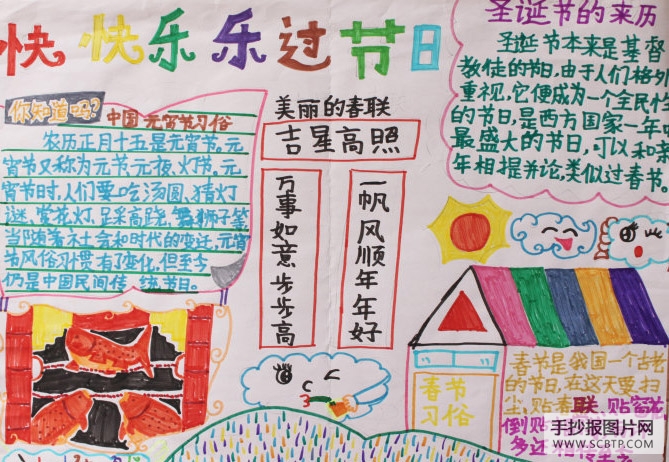 快快乐乐过节日
圣诞节的来历
圣诞节本来是基督
教徒的节日,由于人们格外
重视,它便成为一个全民代
的节日,是西方国家一年
最盛大的节日,可以和
年相提并论,类似过春节。
你知道吗?
中国元宵节习俗
农历正月十五是元宵节。元
宵节又称为元节元夜、灯节。元
宵节时,人们要吃汤圆、猜灯
谜、赏花灯、足采高跷、舞狮子等
当随着社会和时代的变迁,元宵
节风俗习惯有了变化,但至今
仍是中国民间传统节日。
美丽的春联
吉星高照
万事如意步步高
一帆风顺年年好
春节
习俗
春节是我国一个古
的节日,在这天要扫
尘,贴春联、贴窗花
倒贴
多还
手抄报图片网
www.SCBTP.COM